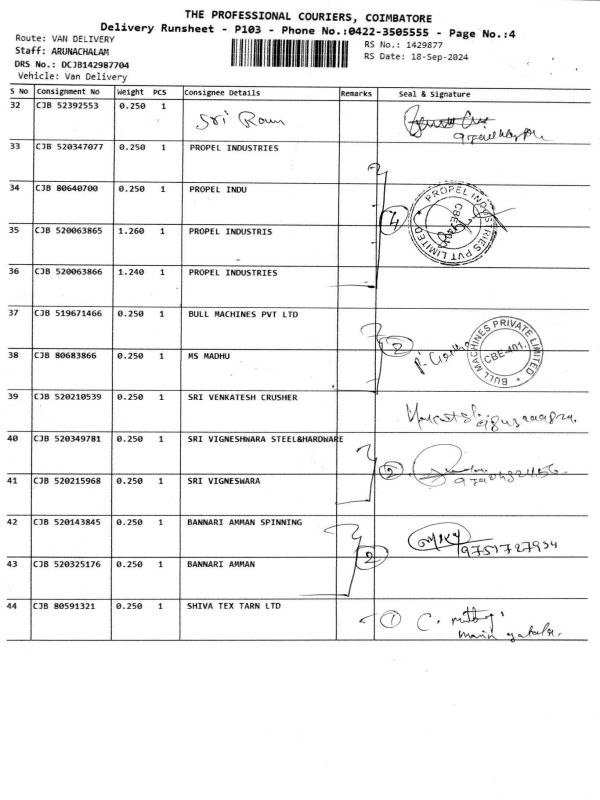 THE PROFESSIONAL COURIERS, COIMBATORE
Delivery Runsheet - P103 - Phone No.:0422-3505555 - Page No.:4
Route: VAN DELIVERY
RS No.: 1429877
Staff: ARUNACHALAM
RS Date: 18-Sep-2024
DRS No.: DCJB142987704
Vehicle: Van Delivery
S No Consignment No Weight PCS Consignee Details Remarks Seal & Signature
32 CJB 52392553 0.250 1 Sri Ram
33 CJB 520347077 0.250 1 PROPEL INDUSTRIES
34 CJB 80640700 0.250 1 PROPEL INDU 4 PROPEL INDUSTRIES PVT LIMITED
35 CJB 520063865 1.260 1 PROPEL INDUSTRIS
36 CJB 520063866 1.240 1 PROPEL INDUSTRIES
37 CJB 519671466 0.250 1 BULL MACHINES PVT LTD 2 BULL MACHINES PRIVATE LIMITED CBE-401.
38 CJB 80683866 0.250 1 MS MADHU
39 CJB 520210539 0.250 1 SRI VENKATESH CRUSHER
40 CJB 520349781 0.250 1 SRI VIGNESHWARA STEEL&HARDWARE 2
41 CJB 520215968 0.250 1 SRI VIGNESWARA
42 CJB 520143845 0.250 1 BANNARI AMMAN SPINNING 2 9751727934
43 CJB 520325176 0.250 1 BANNARI AMMAN
44 CJB 80591321 0.250 1 SHIVA TEX TARN LTD 1 C.